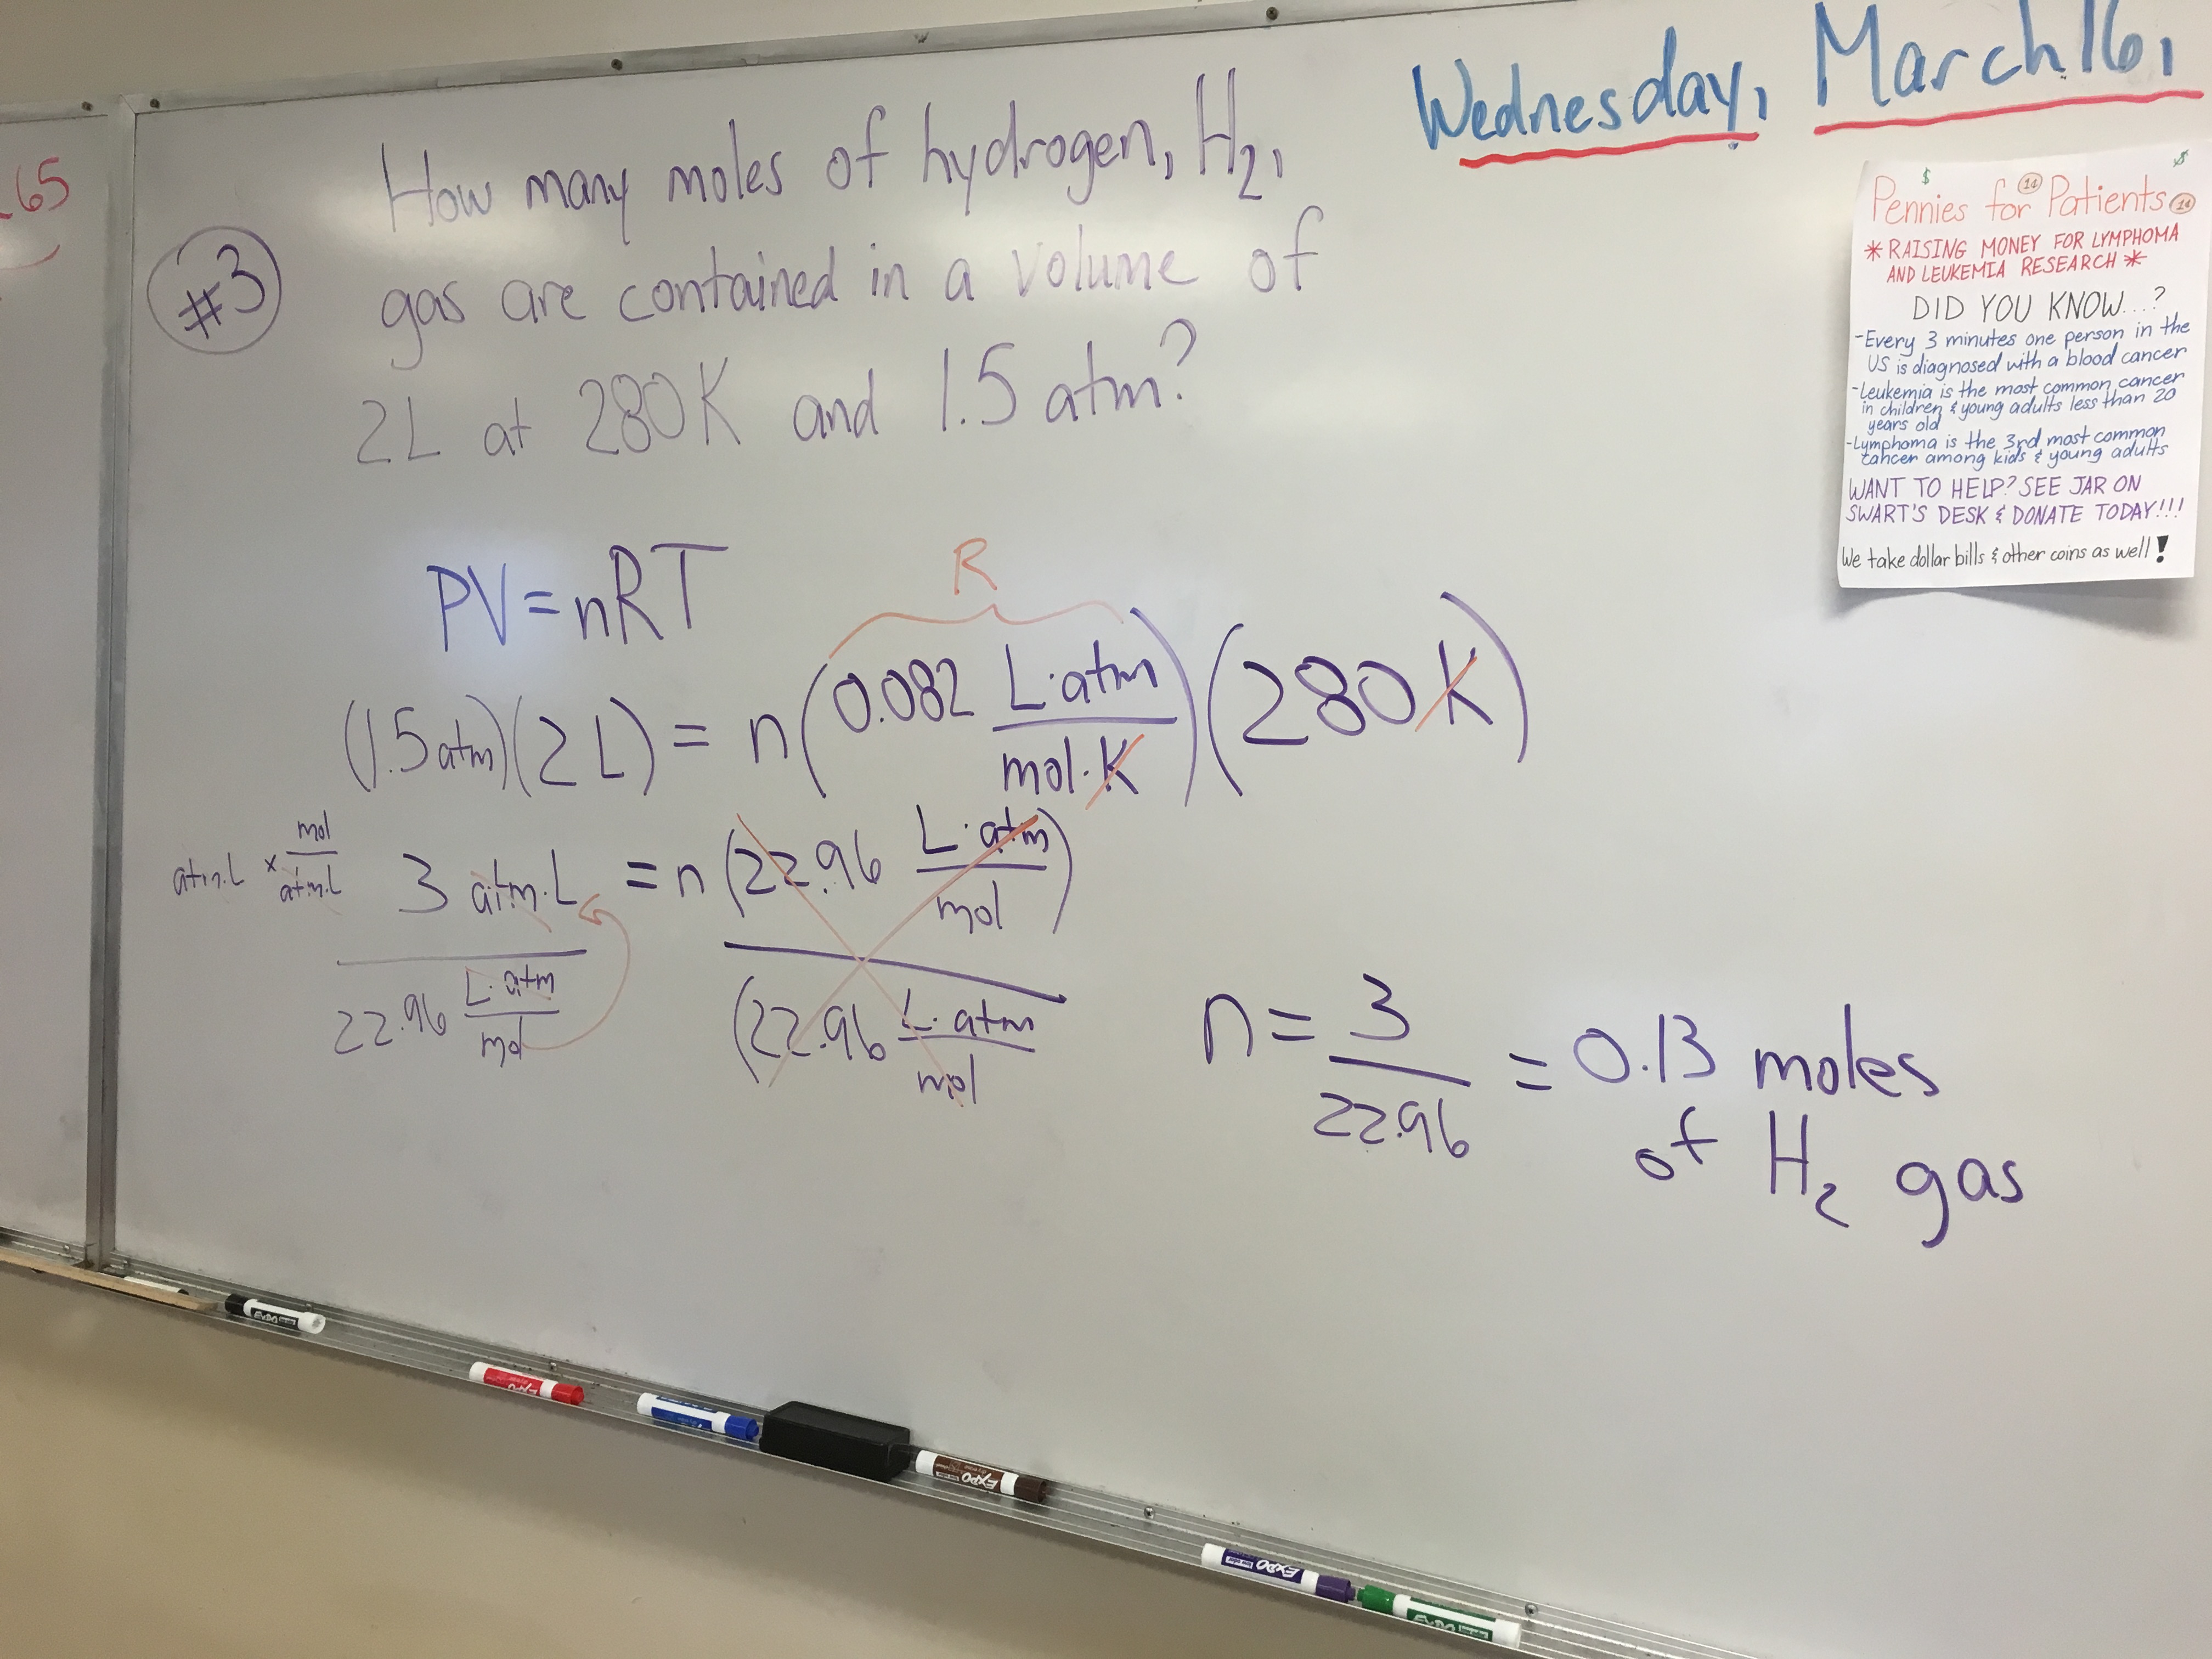 Wednesday, March 16,
65
#3
How many moles of hydrogen, H₂,
gas are contained in a volume of
2L at 280K and 1.5 atm?
PV=nRT
R
(1.5 atm)(2 L) = n(0.082 L·atm/mol·K)(280K)
atm·L × mol/atm·L
3 atm·L / 22.96 L·atm/mol = n(22.96 L·atm/mol) / (22.96 L·atm/mol
n = 3/22.96 = 0.13 moles
of H₂ gas
$ $
Pennies for Patients
1¢ 1¢
* RAISING MONEY FOR LYMPHOMA
AND LEUKEMIA RESEARCH *
DID YOU KNOW...?
-Every 3 minutes one person in the
US is diagnosed with a blood cancer
-Leukemia is the most common cancer
in children & young adults less than 20
years old
-Lymphoma is the 3rd most common
cancer among kids & young adults
WANT TO HELP? SEE JAR ON
SWART'S DESK & DONATE TODAY!!!
We take dollar bills & other coins as well!
EXPO
EXPO
EXPO
EXPO
EXPO